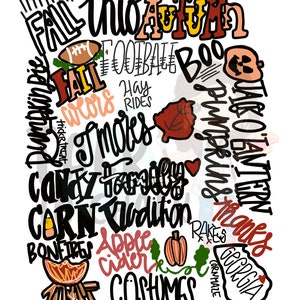 FALL
into
AUTUMN
FOOTBALL
BOO
FALL
colors
HAY
RIDES
Pumpkin Pie
S'mores
Pumpkins
JACK O LANTERN
CANDY
CORN
Family
Tradition
Thanks
RAKES
BONFIRES
Apple
cider
GEORGIA
CORN MAZE
COSTUMES